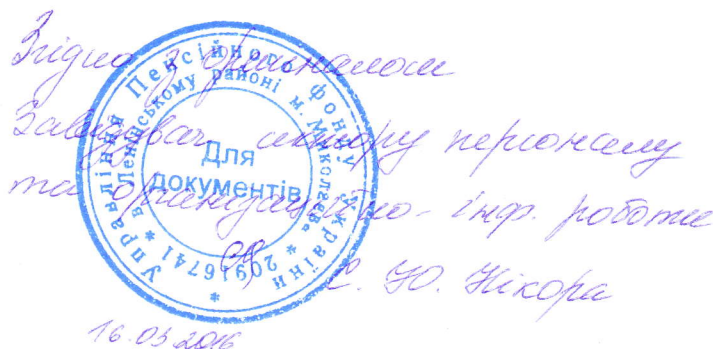 Згідно з оригіналом
Завідувач сектору персоналу
та організаційно-інф. роботи
С. Ю. Нікора
16.03.2016
Управління Пенсійного фонду України
в Ленінському районі м. Миколаєва
* 20916741 *
Для
документів